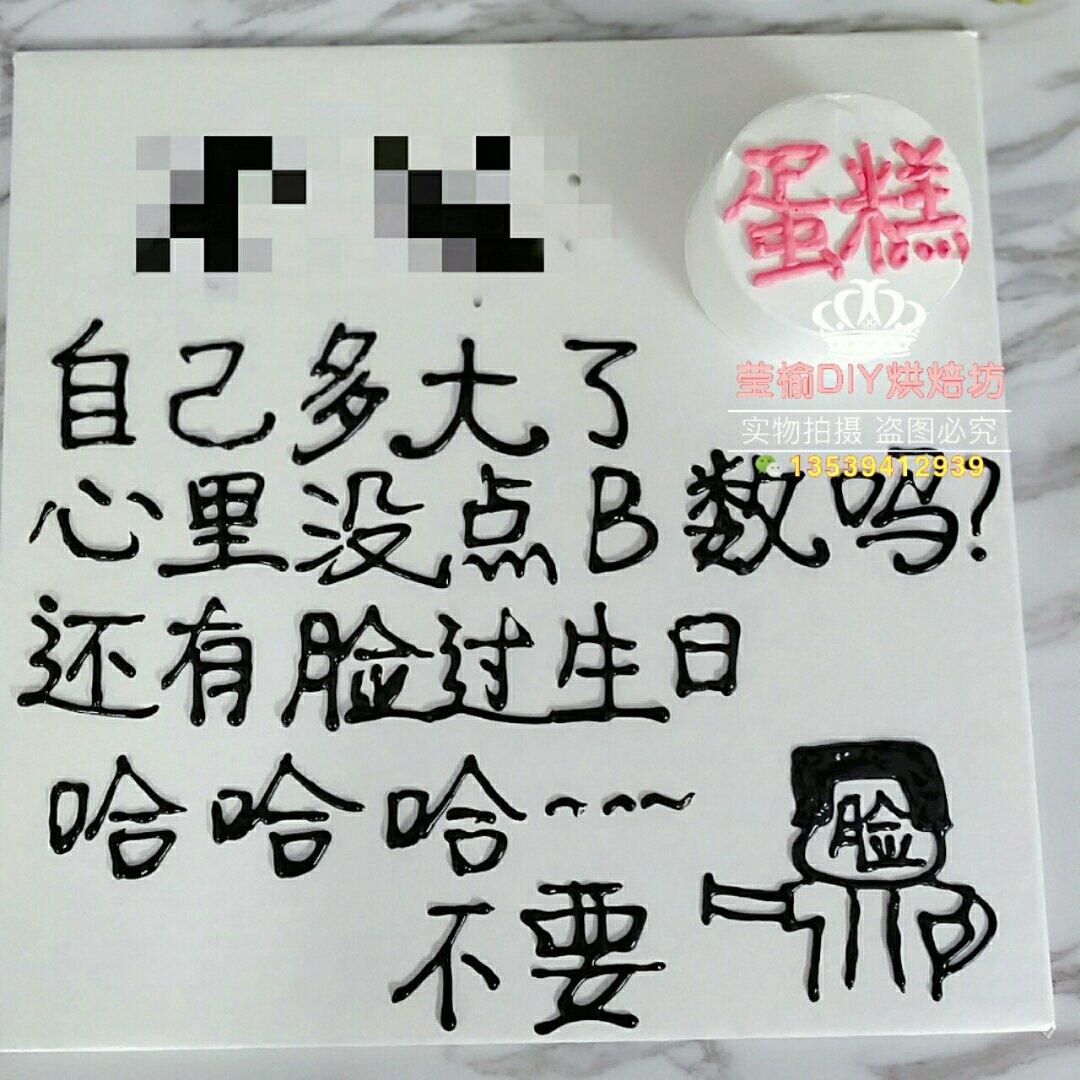 蛋糕
莹榆DIY烘焙坊
实物拍摄 盗图必究
13539412939
自己多大了
心里没点B数吗?
还有脸过生日
哈哈哈~~~
不要
脸